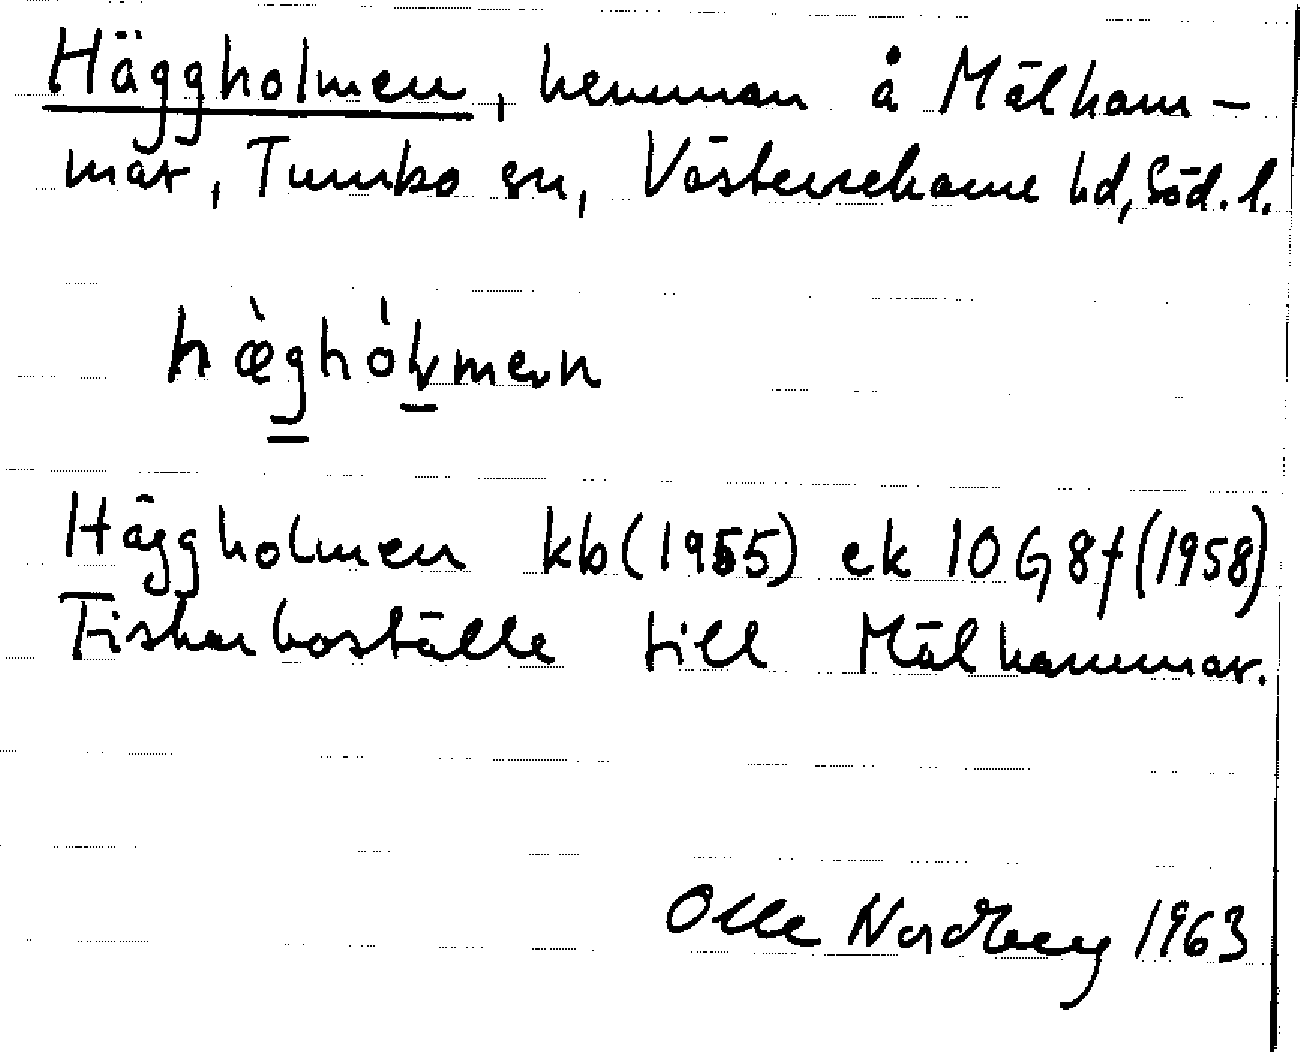 Häggholmen, hemman å Mälham-
mar, Tumbo sn, Västerrekarne hd, Söd. l.
hæ̀ghòlmen
Häggholmen kb (1955) ek 10G8f (1958)
Fiskarboställe till Mälhammar.
Olle Nordberg 1963